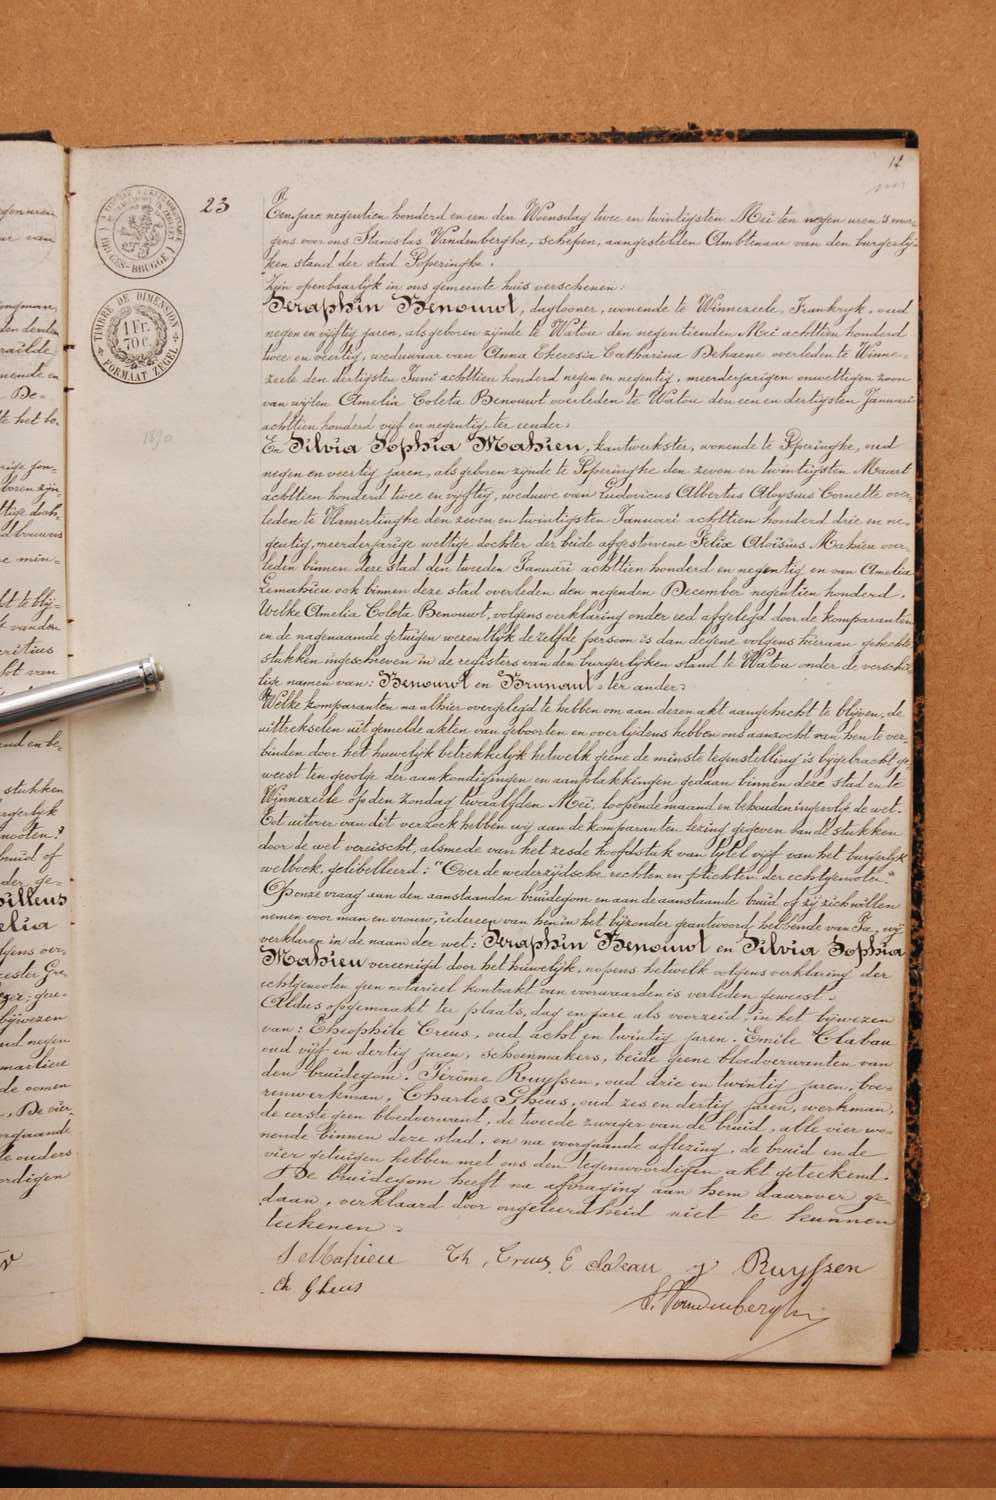 12
23
TIMBRE DE DIMENSION
1 Fr. 70 c.
FORMAAT ZEGEL
BRUGES-BRUGGE
1890
Een jare negentien honderd en een den Woensdag twee en twintigsten Meï ten negen uren 's mor-
gens voor ons Stanislas Vandenberghe, schepen, aangestelden Ambtenaar van den burgerlij-
ken stand der stad Poperinghe.
Zijn openbaarlijk in ons gemeente huis verschenen:
Seraphin Benouwt, daglooner, wonende te Winnezeele, Frankryk, oud
negen en vijftig jaren, als geboren zijnde te Watou den negentienden Meï achttien honderd
twee en veertig, weduwaar van Anna Theresia Catharina Dehaene overleden te Winne-
zeele den dertigsten Juni achttien honderd negen en negentig, meerderjarigen onwettigen zoon
van wijlen Amelia Coleta Benouwt overleden te Watou den een en dertigsten Januari
achttien honderd vijf en negentig, ter eender;
En Silvia Sophia Mahieu, kantwerkster, wonende te Poperinghe, oud
negen en veertig jaren, als geboren zijnde te Poperinghe den zeven en twintigsten Maart
achttien honderd twee en vijftig, weduwe van Ludovicus Albertus Aloysius Cornette over-
leden te Vlamertinghe den zeven en twintigsten Januari achttien honderd drie en ne-
gentig, meerderjarige wettige dochter der beide afgestorvene Felix Aloïsius Mahieu over-
leden binnen deze stad den tweeden Januari achttien honderd en negentig en van Amelia
Lemahieu ook binnen deze stad overleden den negenden December negentien honderd.
Welke Amelia Coleta Benouwt, volgens verklaring onder eed afgelegd door de komparanten
en de nagenaamde getuigen wezentlijk dezelfde persoon is dan degene volgens hieraan gehechte
stukken ingeschreven in de registers van den burgerlijken stand te Watou onder de verschil-
lige namen van: Benouwt en Brunaut, ter ander;
Welke komparanten na alhier overgelegd te hebben om aan dezen akt aangehecht te blijven, de
uittrekselen uit gemelde akten van geboorten en overlijdens hebben ons aanzocht van hen te ver-
binden door het huwelijk betrekkelijk hetwelk geene de minste tegenstelling is bijgebracht ge-
weest ten gevolge der aankondigingen en aanplakkingen gedaan binnen deze stad en te
Winnezeele op den Zondag twaalfden Meï, loopende maand en behouden ingevolge de wet.
Tot uitvoer van dit verzoek hebben wij aan de komparanten lezing gegeven van de stukken
door de wet vereischt, alsmede van het zesde hoofdstuk van tytel vijf van het burgerlijk
wetboek, gelibelleerd: "Over de wederzijdsche rechten en plichten der echtgenooten."
Op onze vraag aan den aanstaanden bruidegom en aan de aanstaande bruid of zij zich willen
nemen voor man en vrouw, iedereen van hen in het bijzonder geantwoord hebbende van Ja, wij
verklaren in de naam der wet: Seraphin Benouwt en Silvia Sophia
Mahieu vereenigd door het huwelijk, nopens hetwelk volgens verklaring der
echtgenoten geen notarieel kontrakt van voorwaarden is verleden geweest.
Aldus opgemaakt ter plaats, dag en jare als voorzeid, in het bijwezen
van: Theophile Creus, oud acht en twintig jaren. Emile Clabau
oud vijf en dertig jaren, schoenmakers, beide geene bloedverwanten van
den bruidegom. Jérôme Ruyssen, oud drie en twintig jaren, boe-
renwerkman, Charles Gheus, oud zes en dertig jaren, werkman,
de eerste geen bloedverwant, de tweede zwager van de bruid, alle vier wo-
nende binnen deze stad, en na voorgaande aflezing, de bruid en de
vier getuigen hebben met ons den tegenwoordigen akt geteekend.
De bruidegom heeft na afvraging aan hem daarover ge-
daan, verklaard door ongeleerdheid niet te kunnen
teekenen.
S Mahieu Th. Creus E clabau J Ruyssen
Ch Gheus
S. Vandenberghe